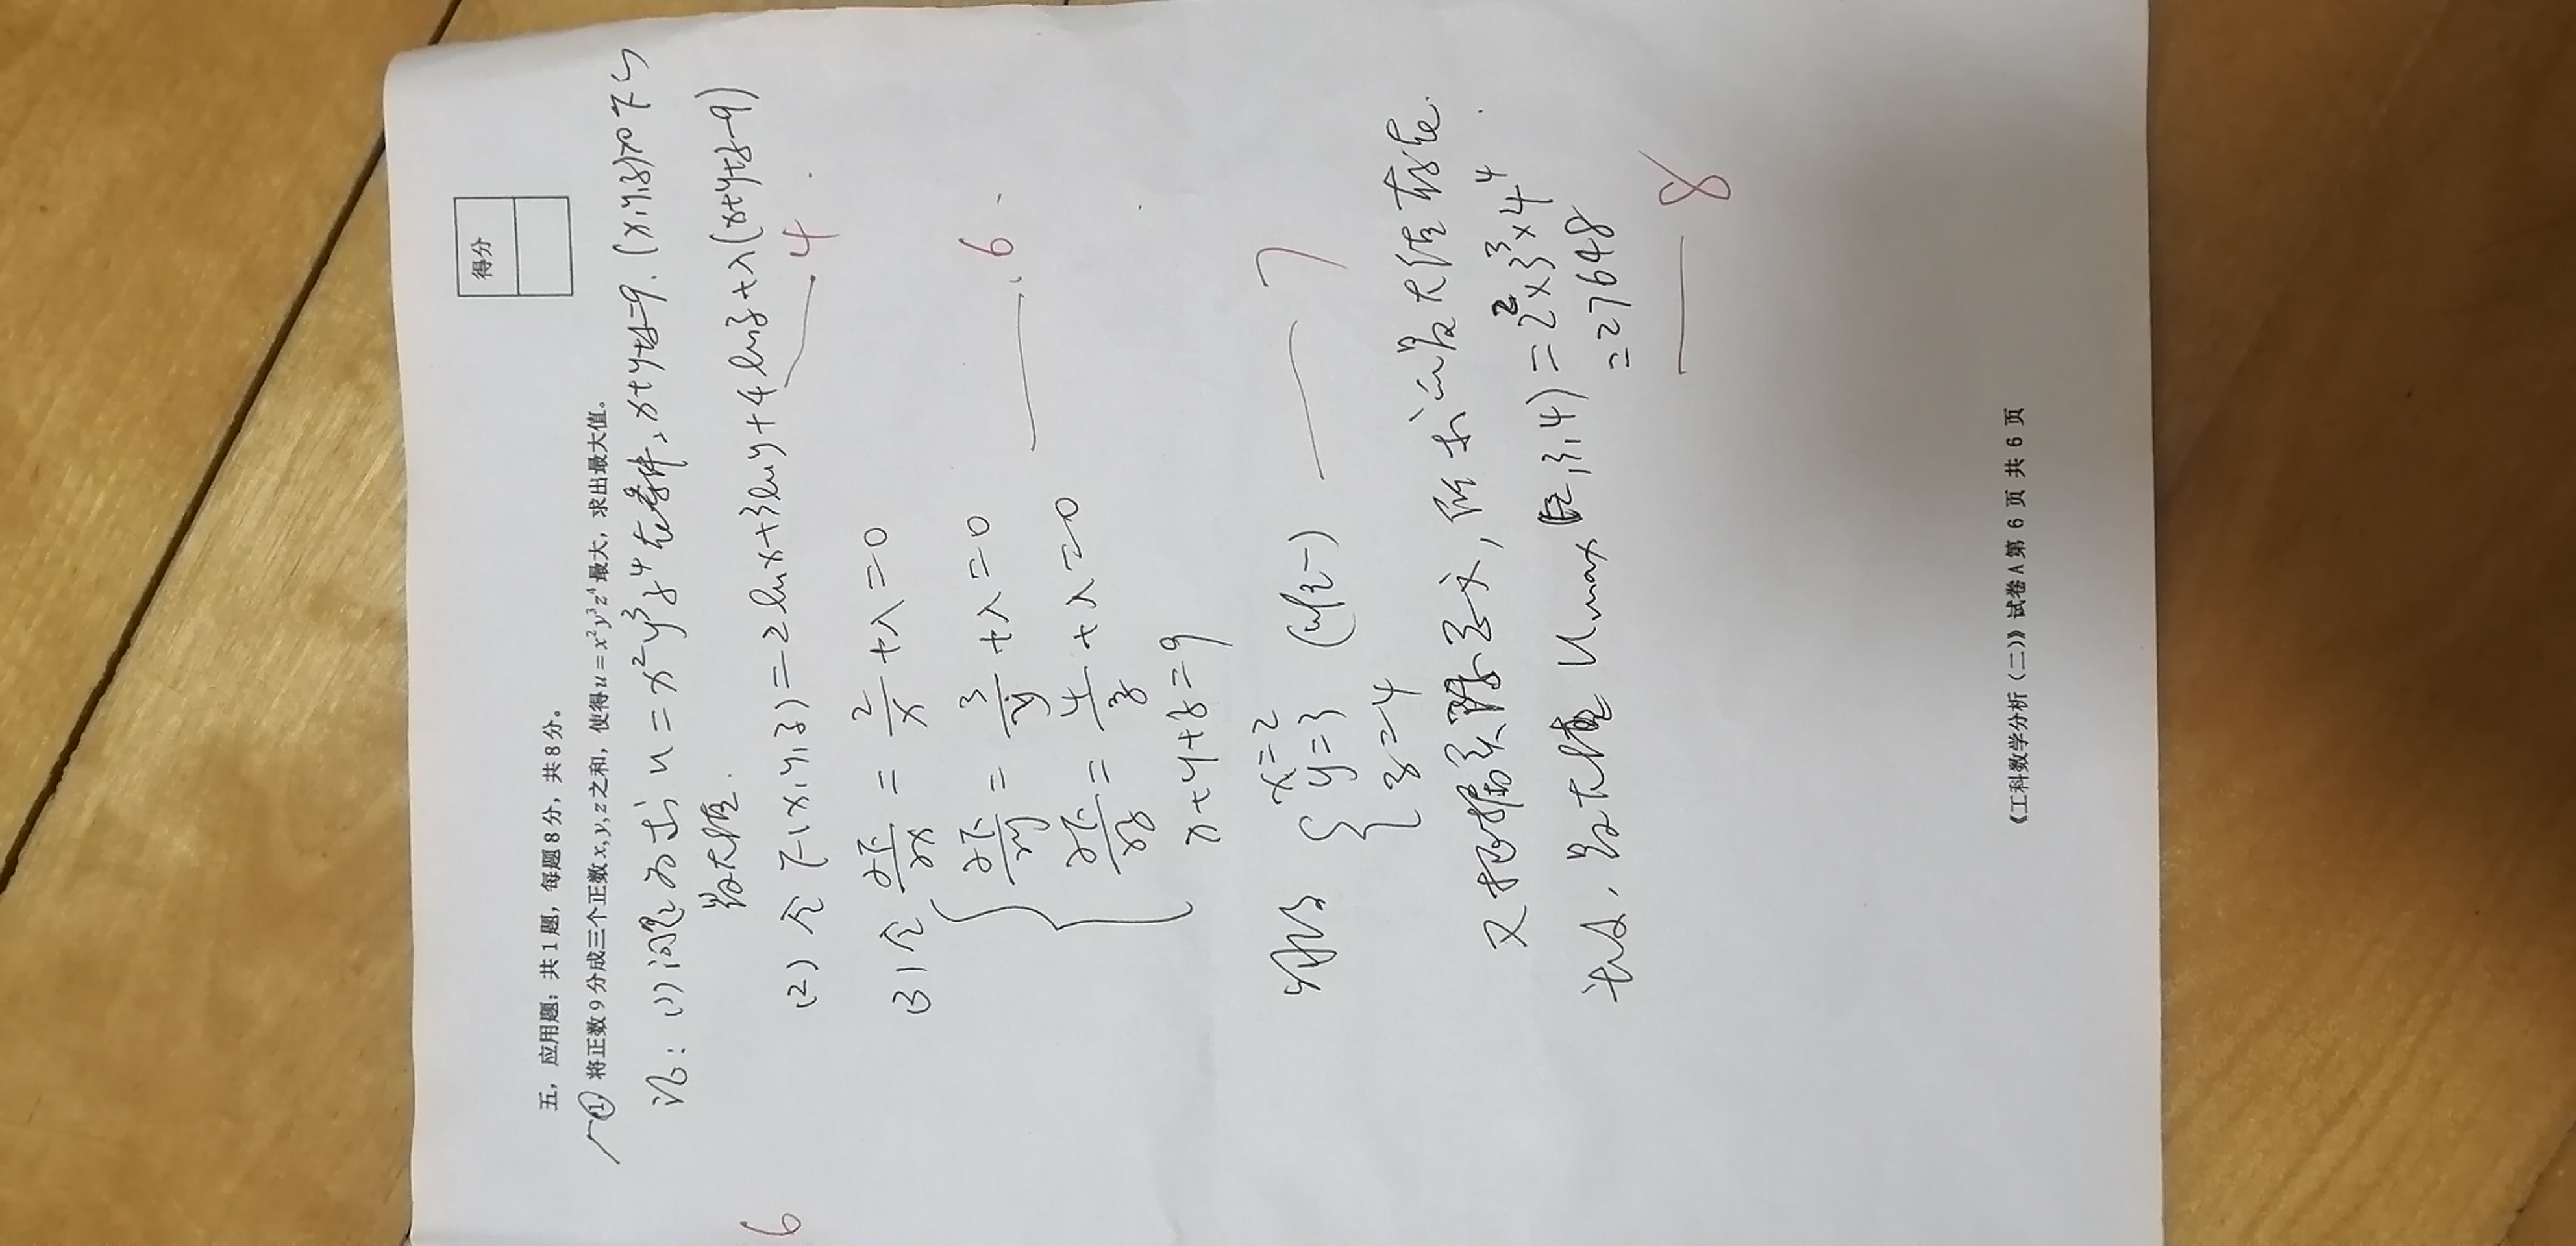 得分
五，应用题：共1题，每题8分，共8分。
① 将正数9分成三个正数x,y,z之和，使得u=x²y³z⁴最大，求出最大值。
解：(1) 问题为求 u=x²y³z⁴在条件，x+y+z=9.(x,y,z)>0下的
最大值.
(2) 令 F(x,y,z)=2lnx+3lny+4lnz+λ(x+y+z-9)
4
(3) 令 ∂F/∂x = 2/x +λ=0
∂F/∂y = 3/y +λ=0
6
∂F/∂z = 4/z +λ=0
x+y+z=9
解得 x=2
y=3 (唯一)
z=4
7
又根据实际意义，所求的最大值存在.
故，最大值 Umax (2,3,4)=2²×3³×4⁴
=27648
8
6
《工科数学分析（二）》试卷A第 6 页 共 6 页